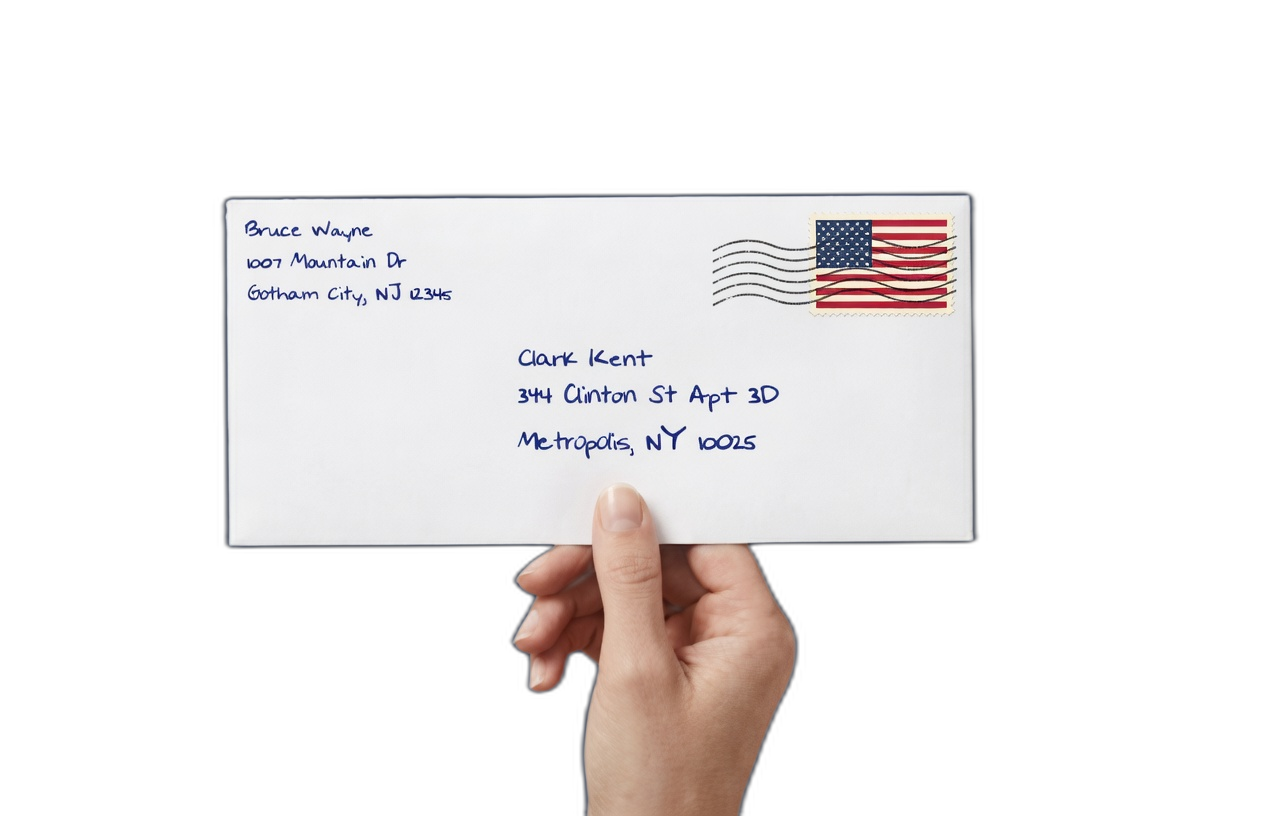 Bruce Wayne
1007 Mountain Dr
Gotham City, NJ 12345
Clark Kent
344 Clinton St Apt 3D
Metropolis, NY 10025